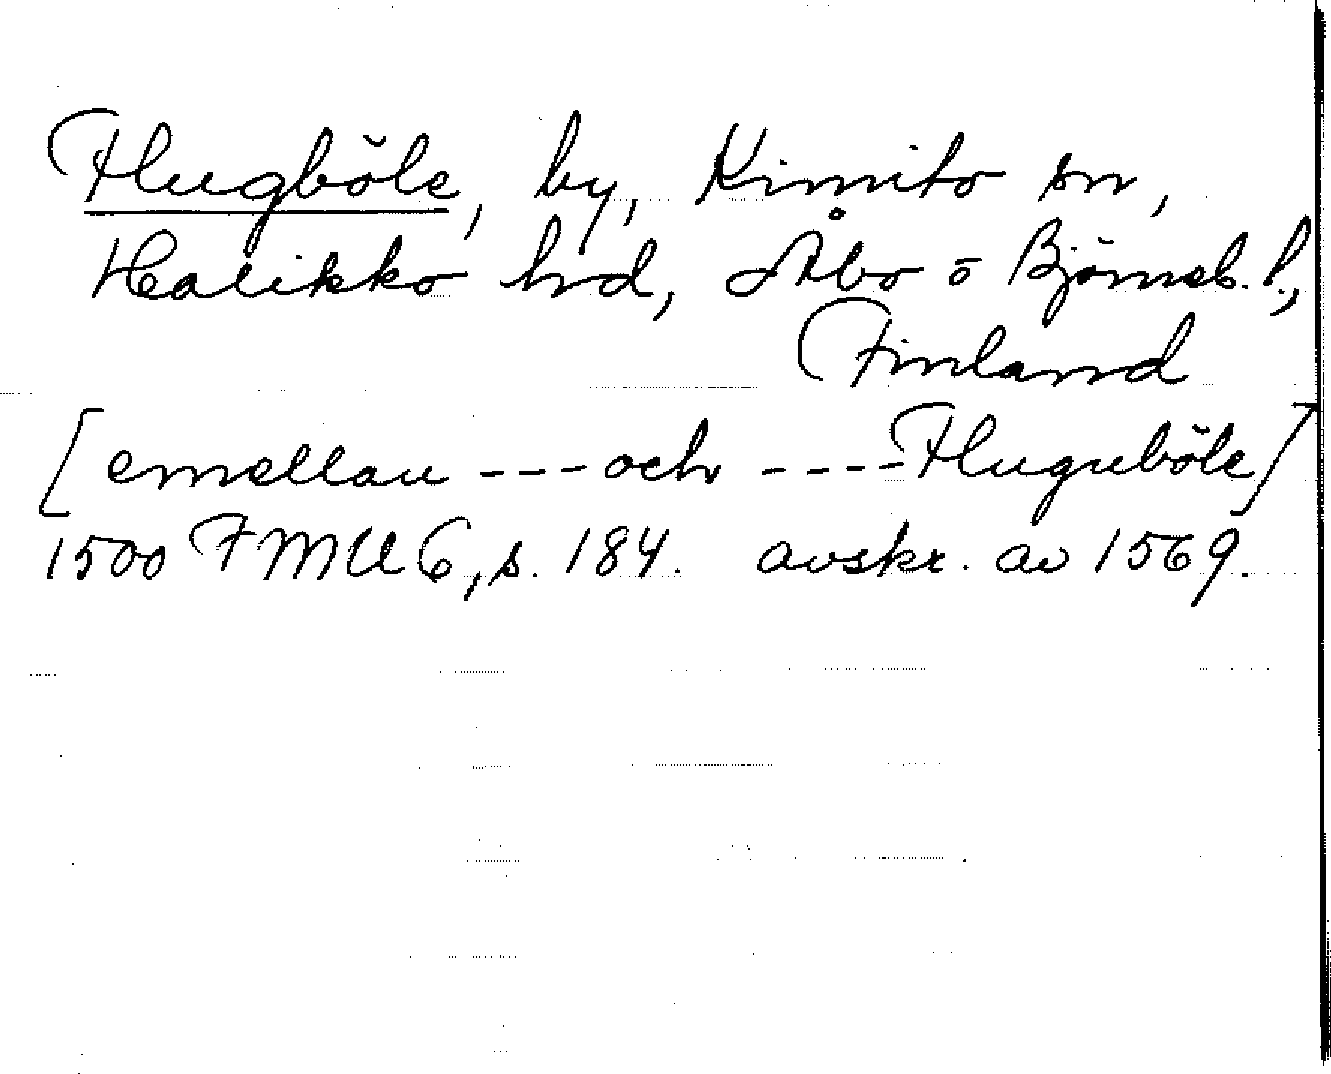 Flugböle, by, Kimito sn,
Halikko hd, Åbo o Björneb. l.,
Finland
[emellan --- och ---- Fluguböle]
1500 FMU 6, s. 184. avskr. av 1569.